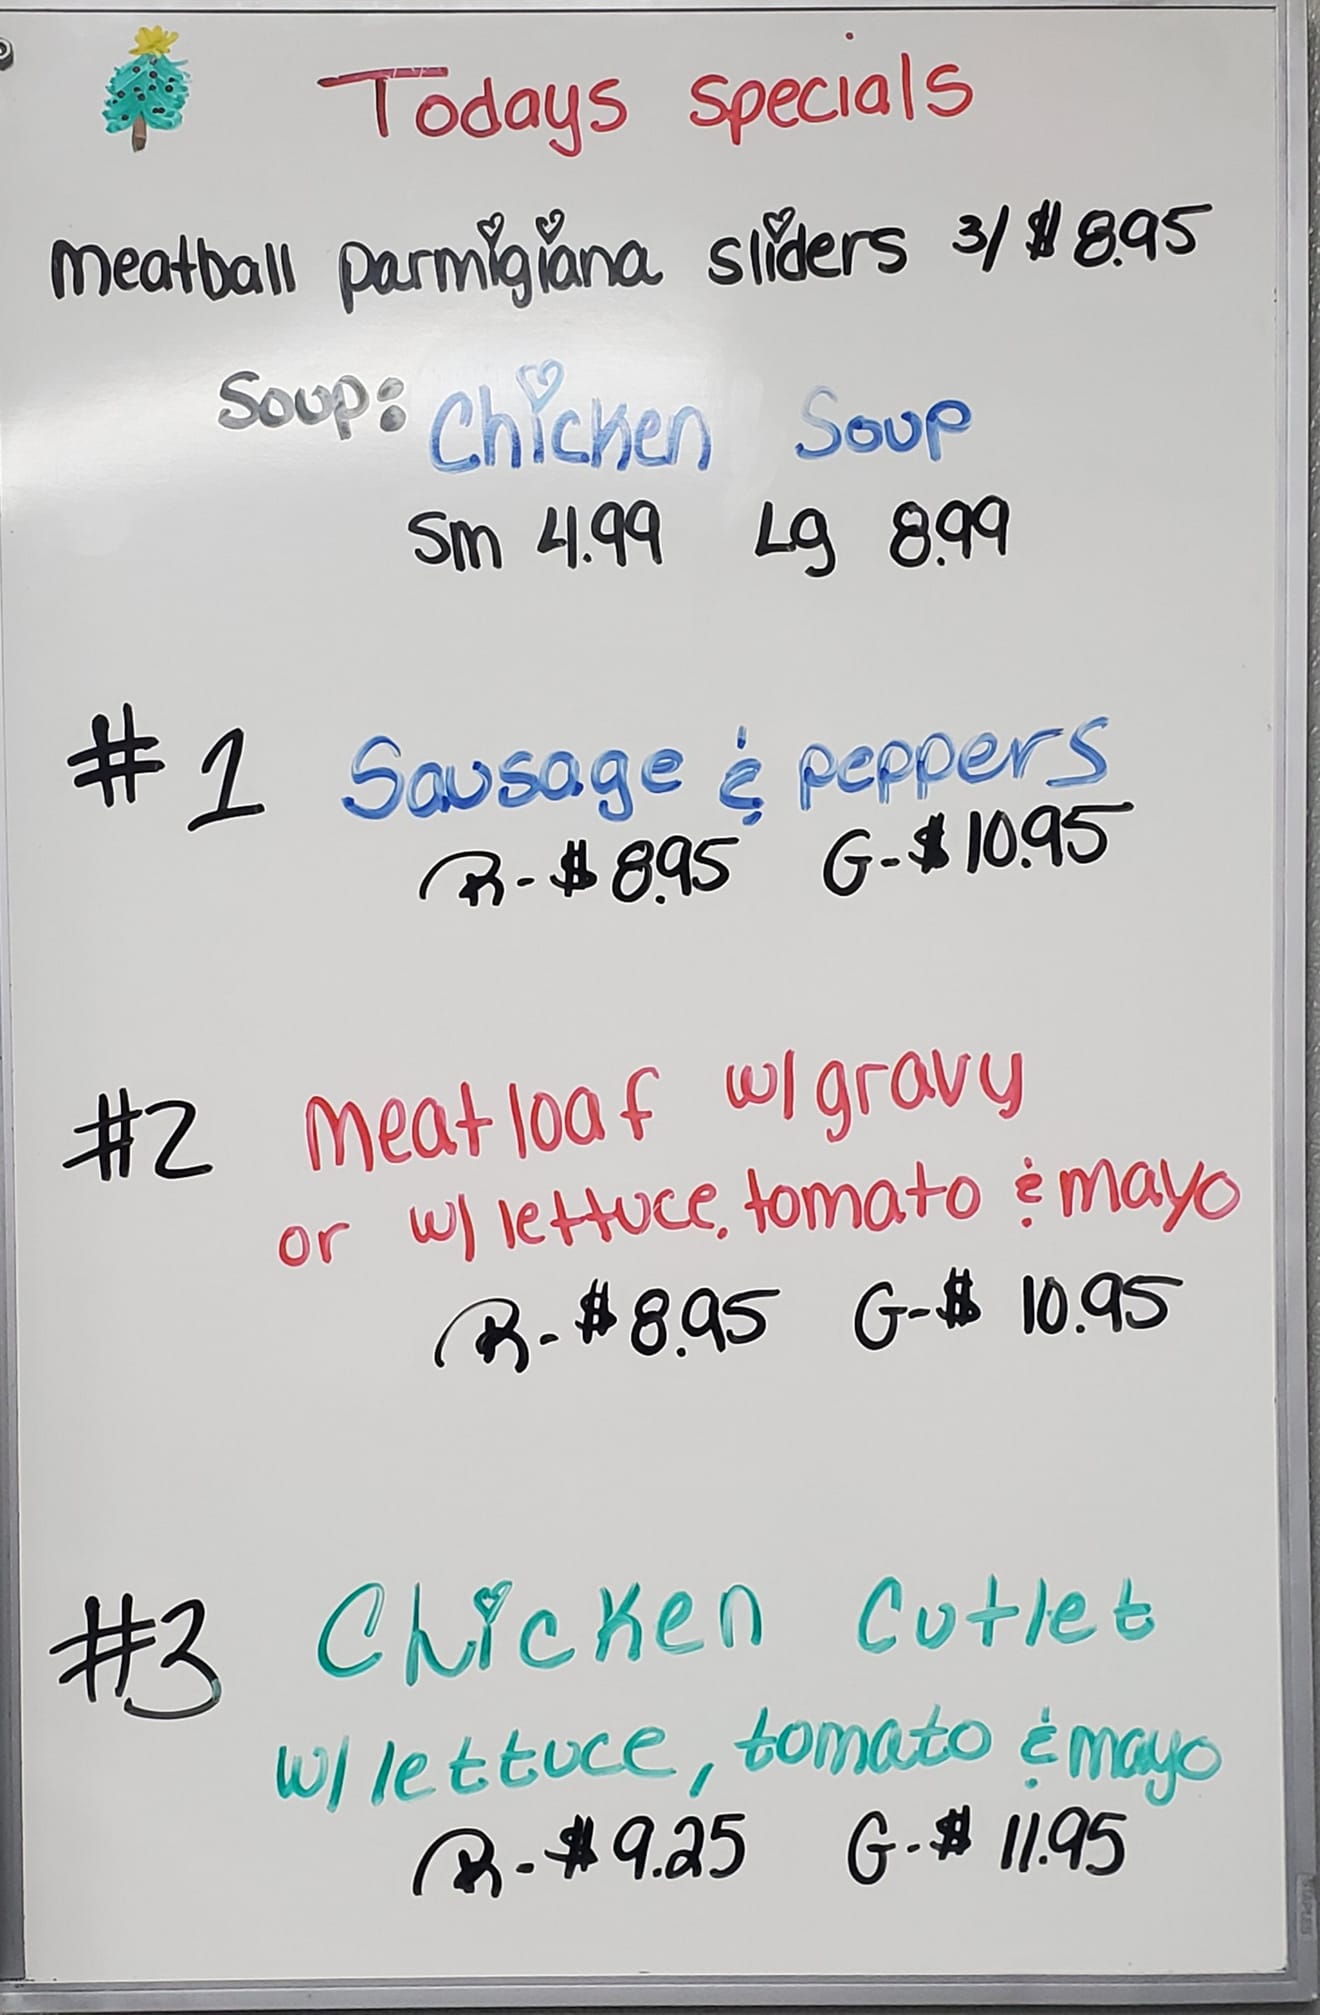 Todays specials
meatball parmigiana sliders 3/$8.95
Soup: Chicken Soup
Sm 4.99 Lg 8.99
#1 Sausage & peppers
R-$8.95 G-$10.95
#2 meatloaf w/gravy
or w/lettuce, tomato & mayo
R-$8.95 G-$10.95
#3 Chicken Cutlet
w/lettuce, tomato & mayo
R-$9.25 G-$11.95
STAPLES